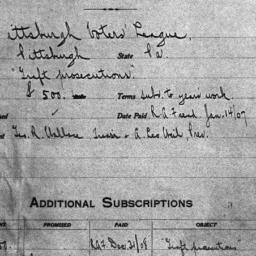 ittsburgh Voters' League,
Pittsburgh State Pa.
"Graft prosecutions"
$ 500. Terms subs. to years work
Date Paid R.A.F. Jan. 14/07
Geo. R. Wallace Treas. + A. Leo Weil, Pres.
ADDITIONAL SUBSCRIPTIONS
NT PROMISED PAID OBJECT
R.A.F. Dec. 21/08 "Graft prosecutions"